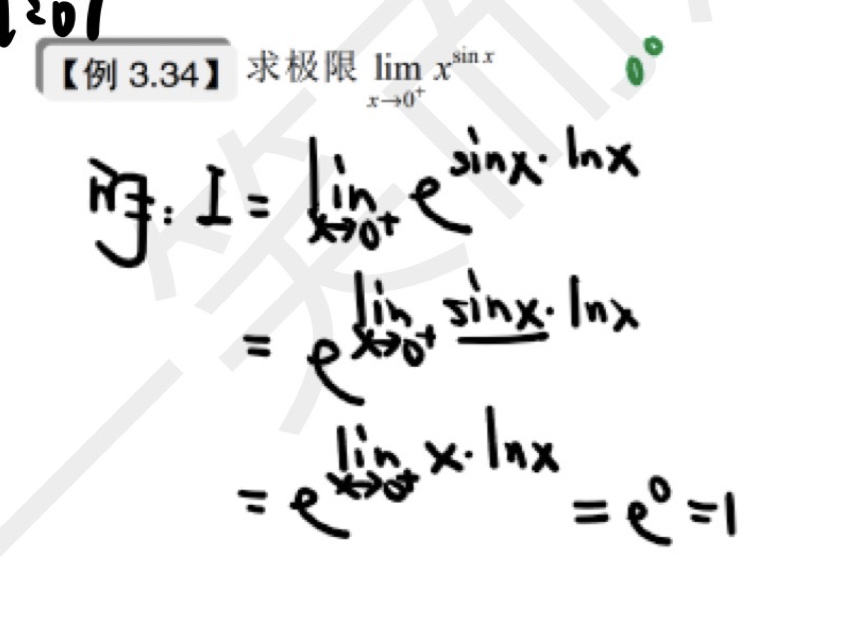 【例 3.34】求极限 lim x→0⁺ x^(sin x) 0⁰
解: I = lim x→0⁺ e^(sinx·lnx)
= e^(lim x→0⁺ sinx·lnx)
= e^(lim x→0⁺ x·lnx) = e⁰ = 1